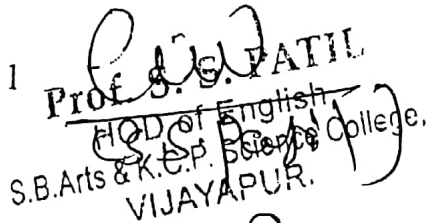 1
Prof. S. S. PATIL
HOD of English
S.B.Arts & K.C.P. Science College,
VIJAYAPUR.